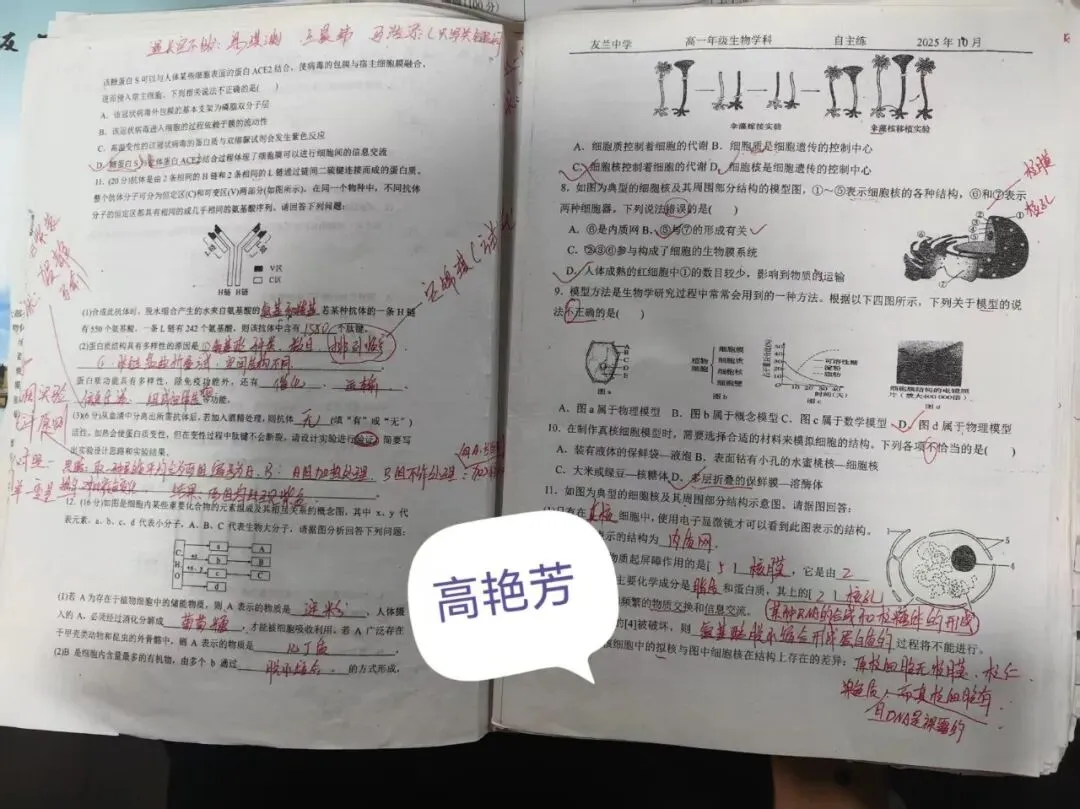 该糖蛋白S可以与人体某些细胞表面的蛋白ACE2结合，使病毒的包膜与宿主细胞膜融合，
进而侵入宿主细胞。下列相关说法不正确的是( )
A．该冠状病毒外包膜的基本支架为磷脂双分子层
B．该冠状病毒进入细胞的过程依赖于膜的流动性
C．高温变性的该冠状病毒的蛋白质与双缩脲试剂会发生紫色反应
D．糖蛋白S与蛋白ACE2结合过程体现了细胞膜可以进行细胞间的信息交流
11. (20分)抗体是由2条相同的H链和2条相同的L链通过链间二硫键连接而成的蛋白质。
整个抗体分子可分为恒定区(C)和可变区(V)两部分(如图所示)。在同一个物种中，不同抗体
分子的恒定区都具有相同的或几乎相同的氨基酸序列。请回答下列问题：
V区
C区
H链 H链
(1)合成此抗体时，脱水组合产生的水来自氨基酸的 氨基和羧基 若某种抗体的一条H链
有550个氨基酸，一条L链有242个氨基酸，则该抗体中含有 1580 个肽键。
(2)蛋白质结构具有多样性的原因是 ①氨基酸种类、数目、排列顺序
空间结构不同
蛋白质功能具有多样性，除免疫功能外，还有 催化 运输
等功能。
(3)(6分)从血清中分离出所需抗体后，若加入酒精处理，则抗体 无 (填“有”或“无”)
活性。加热会使蛋白质变性，但在变性过程中肽键不会断裂，请设计实验进行验证，简要写
出实验设计思路和实验结果。
12. (16分)如图是细胞内某些重要化合物的元素组成及其相互关系的概念图，其中x、y代
表元素，a、b、c、d代表小分子，A、B、C代表生物大分子，请据图分析回答下列问题：
(1)若A为存在于植物细胞中的储能物质，则A表示的物质是 淀粉 ，人体摄
入的A，必须经过消化分解成 葡萄糖 ，才能被细胞吸收利用。若A广泛存在
于甲壳类动物和昆虫的外骨骼中，则A表示的物质是 几丁质
(2)B是细胞内含量最多的有机物，由多个b通过 脱水缩合 的方式形成，
友兰中学 高一年级生物学科 自主练 2025年10月
伞藻嫁接实验 伞藻核移植实验
A．细胞质控制着细胞的代谢 B．细胞质是细胞遗传的控制中心
C．细胞核控制着细胞的代谢 D．细胞核是细胞遗传的控制中心
核膜
核孔
8．如图为典型的细胞核及其周围部分结构的模型图，①～⑤表示细胞核的各种结构，⑥和⑦表示
两种细胞器。下列说法错误的是( )
A．⑥是内质网 B．⑤与⑦的形成有关
C．②③⑥参与构成了细胞的生物膜系统
D．人体成熟的红细胞中①的数目较少，影响到物质的运输
9．模型方法是生物学研究过程中常常会用到的一种方法。根据以下四图所示，下列关于模型的说
法不正确的是( )
植物细胞
细胞膜
细胞质
细胞核
细胞壁
可溶性糖
淀粉
脂肪
时间(天)
图a 图b 图c 图d
细胞膜结构的电镜照
片（放大400 000倍）
A．图a属于物理模型 B．图b属于概念模型 C．图c属于数学模型 D．图d属于物理模型
10．在制作真核细胞模型时，需要选择合适的材料来模拟细胞的结构。下列各项不恰当的是( )
A．装有液体的保鲜袋—液泡 B．表面钻有小孔的水蜜桃核—细胞核
C．大米或绿豆—核糖体 D．多层折叠的保鲜膜—溶酶体
11．如图为典型的细胞核及其周围部分结构示意图，请据图回答：
只有在 真核 细胞中，使用电子显微镜才可以看到此图表示的结构。
表示的结构为 内质网
物质起屏障作用的是[ 5 ] 核膜 ，它是由 2
主要化学成分是 脂质 和蛋白质，其上的[ 2 ] 核孔
频繁的物质交换和信息交流。
某种RNA的合成和核糖体的形成
的[4]被破坏，则 氨基酸脱水缩合形成蛋白质的 过程将不能进行。
核细胞中的拟核与图中细胞核在结构上存在的差异： 原核细胞无核膜、核仁
染色质，而真核细胞有
且DNA是裸露的
高艳芳